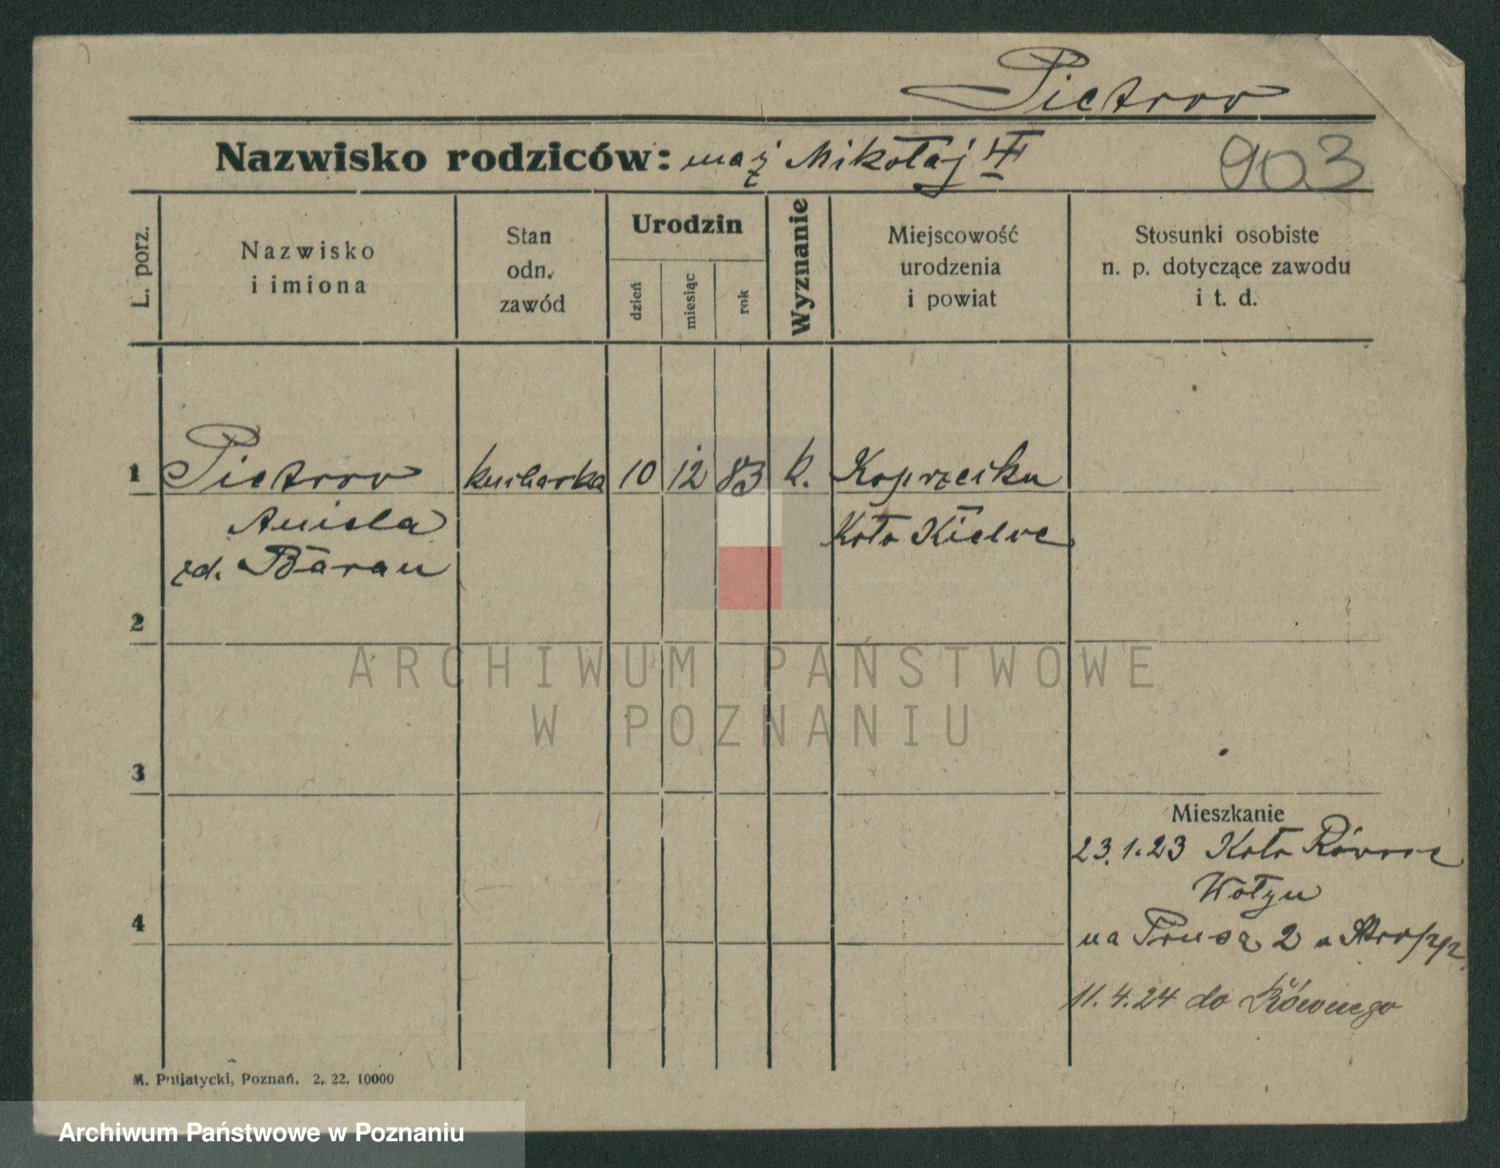 Pietrow
Nazwisko rodziców: mąż Mikołaj
903
L. porz.
Nazwisko
i imiona
Stan
odn.
zawód
Urodzin
dzień
miesiąc
rok
Wyznanie
Miejscowość
urodzenia
i powiat
Stosunki osobiste
n. p. dotyczące zawodu
i t. d.
1 Pietrow kucharka 10 12 83 k.
Aniela Koło Kielce
zd. Baran
2
3
4
Mieszkanie
23.1.23 Koło Równe
Wołyń
na Prusa 2
11.4.24 do Równego
M. Putiatycki, Poznań. 2. 22. 10000
ARCHIWUM PAŃSTWOWE
W POZNANIU
Archiwum Państwowe w Poznaniu